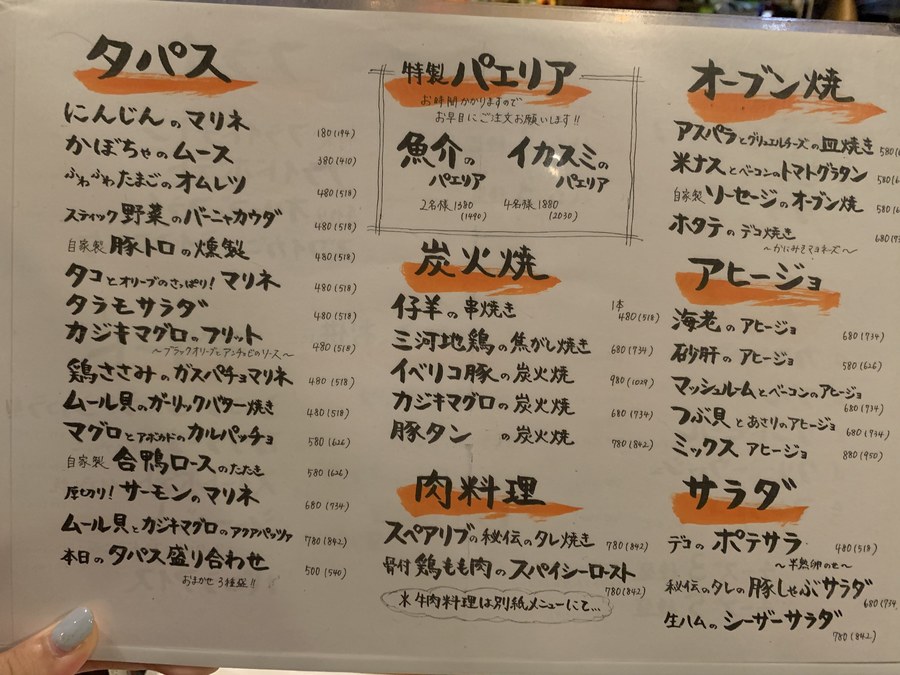 タパス
にんじんのマリネ 180(194)
かぼちゃのムース 380(410)
ふわふわたまごのオムレツ 480(518)
スティック野菜のバーニャカウダ 480(518)
自家製 豚トロの燻製 480(518)
タコとオリーブのさっぱり!マリネ 480(518)
タラモサラダ 480(518)
カジキマグロのフリット 480(518)
〜ブラックオリーブとアンチョビのソース〜
鶏ささみのガスパチョマリネ 480(518)
ムール貝のガーリックバター焼き 480(518)
マグロとアボカドのカルパッチョ 580(626)
自家製 合鴨ロースのたたき 580(626)
厚切り!サーモンのマリネ 680(734)
ムール貝とカジキマグロのアクアパッツァ 780(842)
本日のタパス盛り合わせ 500(540)
おまかせ3種盛!!
特製パエリア
お時間かかりますので
お早目にご注文お願いします!!
魚介のパエリア
イカスミのパエリア
2名様 1380
(1490)
4名様 1880
(2030)
炭火焼
仔羊の串焼き 1本 480(518)
三河地鶏の焦がし焼き 680(734)
イベリコ豚の炭火焼 980(1029)
カジキマグロの炭火焼 680(734)
豚タン の炭火焼 780(842)
肉料理
スペアリブの秘伝のタレ焼き 780(842)
骨付鶏もも肉のスパイシーロースト 780(842)
※牛肉料理は別紙メニューにて...
オーブン焼
アスパラとグリュエルチーズの皿焼き 580(6
米ナスとベーコンのトマトグラタン 580(6
自家製 ソーセージのオーブン焼 580(6
ホタテのデコ焼き 680(7
〜かにみそマヨネーズ〜
アヒージョ
海老のアヒージョ 680(734)
砂肝のアヒージョ 580(626)
マッシュルームとベーコンのアヒージョ 680(734)
つぶ貝とあさりのアヒージョ 680(734)
ミックス アヒージョ 880(950)
サラダ
デコのポテサラ 480(518)
〜半熟卵のせ〜
秘伝のタレの豚しゃぶサラダ 680(734
生ハムのシーザーサラダ 780(842)